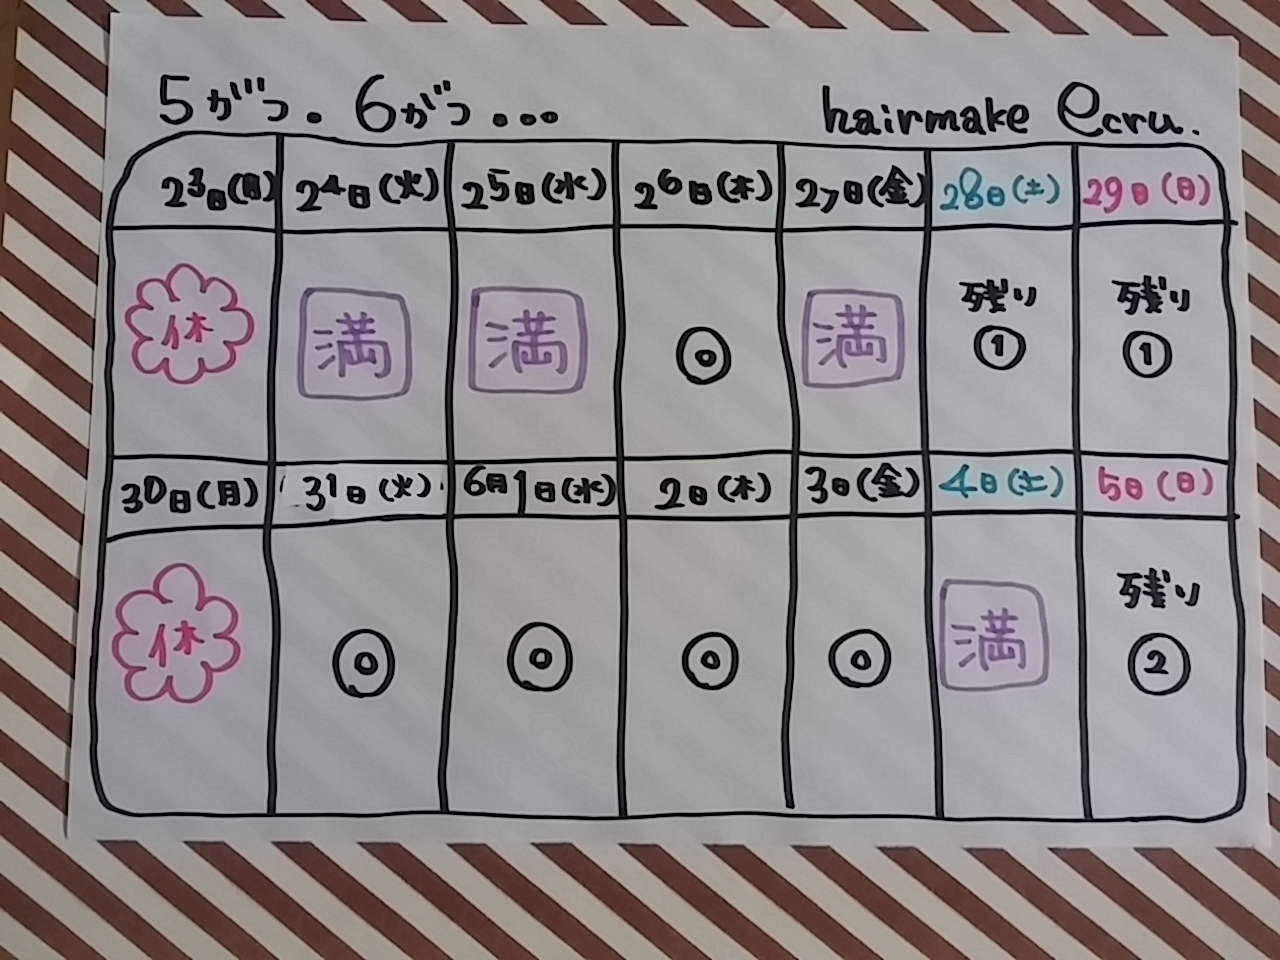 5がつ.6がつ... hairmake Ecru.
23日(月) 24日(火) 25日(水) 26日(木) 27日(金) 28日(土) 29日(日)
休 満 満 ◎ 満 残り① 残り①
30日(月) 31日(火) 6月1日(水) 2日(木) 3日(金) 4日(土) 5日(日)
休 ◎ ◎ ◎ ◎ 満 残り②